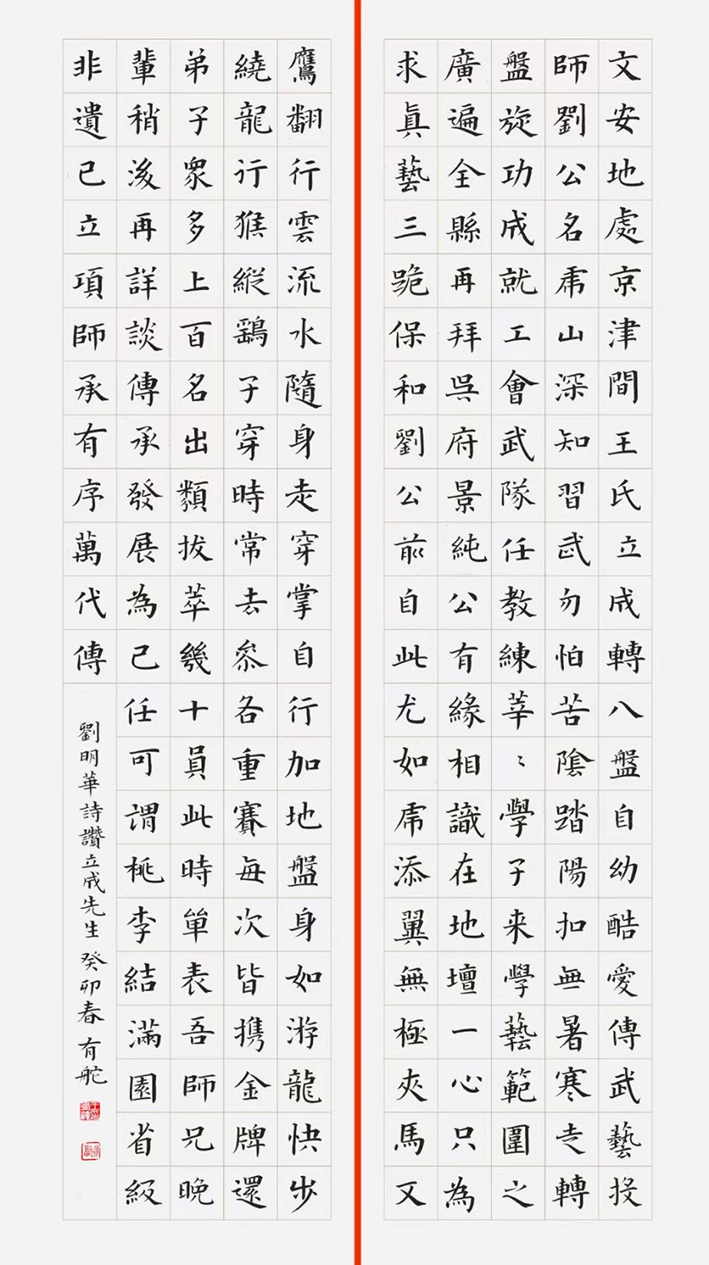 文安地處京津間王氏立成轉八盤自幼酷愛傳武藝投
師劉公名虎山深知習武勿怕苦陰踏陽扣無暑寒走轉
盤旋功成就工會武隊任教練莘〻學子来學藝範圍之
廣遍全縣再拜吳府景純公有緣相識在地壇一心只為
求真藝三跪保和劉公前自此尤如虎添翼無極夾馬又
鷹翻行雲流水隨身走穿掌自行加地盤身如游龍快步
繞龍行猴縱鷂子穿時常去參各重賽每次皆携金牌還
弟子眾多上百名出類拔萃幾十員此時單表吾師兄晚
輩稍後再詳談傳承發展為己任可謂桃李結滿園省級
非遺已立項師承有序萬代傳
劉明華詩讚立成先生 癸卯春有舵